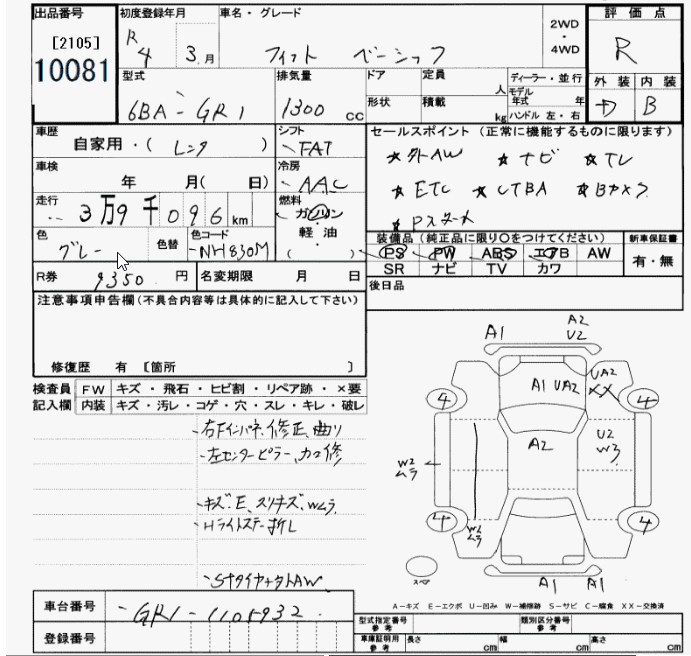 出品番号 初度登録年月 車名・グレード 2WD・4WD 評価点
[2105]
10081
R4 3月 フィット ベーシック R
型式 排気量 ドア 定員 人 ディーラー・並行
形状 積載 kg モデル年式 年
ハンドル 左・右
外装 内装
6BA-GR1 1300 cc D B
車歴 自家用・( レンタ ) シフト FAT
セールスポイント (正常に機能するものに限ります)
★外AW ★ナビ ★TV
★ETC ★CTBA ★Bカメラ
★Pスタート
車検 年 月( 日) 冷房 AAC
走行 3万9千096km 燃料 ガソリン・軽油 ( )
色 グレー 色替 色コード NH830M
装備品 (純正品に限り○をつけてください) 新車保証書
PS PW ABS エアB AW 有・無
SR ナビ TV カワ
R券 9350円 名変期限 月 日 後日品
注意事項申告欄(不具合内容等は具体的に記入して下さい)
修復歴 有 〔箇所 〕
検査員 FW キズ・飛石・ヒビ割・リペア跡・×要
記入欄 内装 キズ・汚レ・コゲ・穴・スレ・キレ・破レ
-右Fインパネ修正、曲リ
-左センターピラー、カコ修
-キズ.E、スリキズ、Wムラ
-Hライトステー折レ
-Sタイヤ+外AW
A1 A2 U2
A1 UA2 UA2 XX
4 4
A2 U2 W3
W2 ムラ
4 4
W2 ムラ
スペア A1 A1
A-キズ E-エクボ U-凹み W-補修跡 S-サビ C-腐食 XX-交換済
車台番号 -GR1-1105932
登録番号
型式指定番号 参考 類別区分番号 参考
車庫証明用 参考 長さ cm 幅 cm 高さ cm